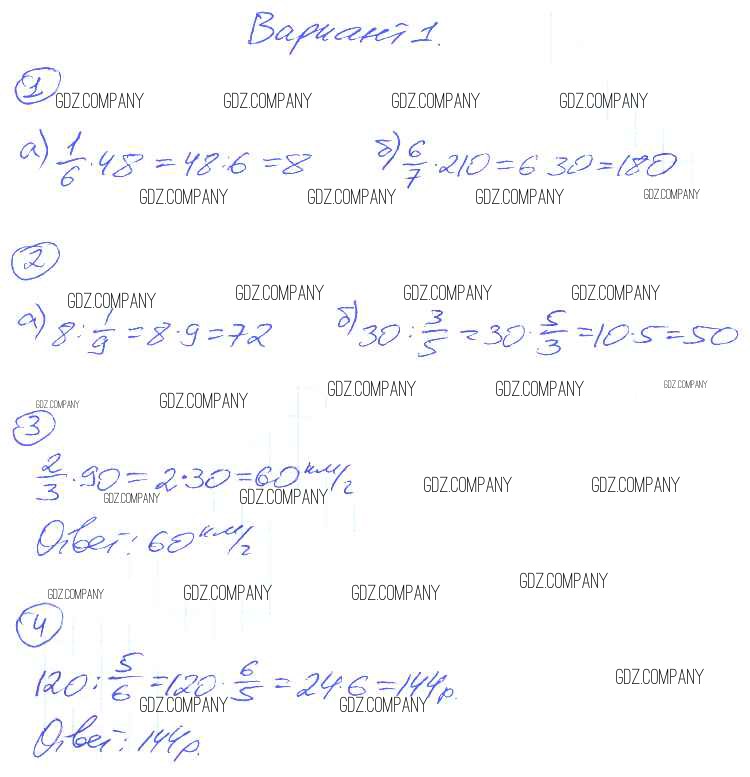 Вариант 1.
1 GDZ.COMPANY GDZ.COMPANY GDZ.COMPANY GDZ.COMPANY
а) 1/6 · 48 = 48 : 6 = 8 б) 6/7 · 210 = 6 30 = 180
GDZ.COMPANY GDZ.COMPANY GDZ.COMPANY GDZ.COMPANY
2
GDZ.COMPANY GDZ.COMPANY GDZ.COMPANY GDZ.COMPANY
а) 8 : 1/9 = 8 · 9 = 72 б) 30 : 3/5 = 30 · 5/3 = 10 · 5 = 50
GDZ.COMPANY GDZ.COMPANY GDZ.COMPANY GDZ.COMPANY GDZ.COMPANY
3
2/3 · 90 = 2 · 30 = 60 км/ч
GDZ.COMPANY GDZ.COMPANY GDZ.COMPANY GDZ.COMPANY
Ответ: 60 км/ч
GDZ.COMPANY GDZ.COMPANY GDZ.COMPANY GDZ.COMPANY
4
120 : 5/6 = 120 · 6/5 = 24 · 6 = 144 р.
GDZ.COMPANY GDZ.COMPANY GDZ.COMPANY
Ответ: 144 р.